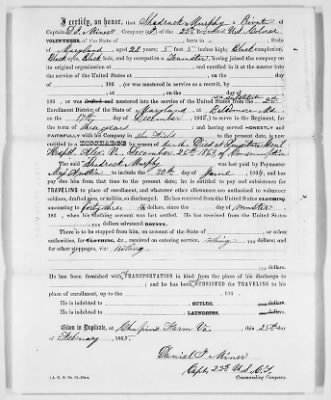 I certify, on honor, that Shadrock Murphy a Private
of Captain D. F. Miner Company of 23rd Regiment U.S. Colored
VOLUNTEERS of the State of born in State of
Maryland aged 22 years 5 feet 5 inches high; Black complexion,
Black eyes, Black hair, and by occupation a Teamster, having joined the company on its
original organization at and enrolled in it at the muster into
the service of the United States at on the day
of 186 (or was mustered in service as a recruit), by
at the day of
186 , or was in the service of the United States from the
on the 17th day of December 1863, to serve in the Regiment,
for the term of three years and having served HONESTLY and
FAITHFULLY with his Company in the Field to the present date, is now
entitled to a DISCHARGE by reason of
December 26th 1864 of Consumption
The said Shadrock Murphy was last paid by Paymaster
Maj. to include the 30th day of June, 1864, and has
pay due him from that time to the present date; he is entitled to pay and subsistence for
TRAVELING to place of enrollment, and whatever other allowances are authorized to
volunteer soldiers, drafted men, or militia, so discharged. He has received from the United States CLOTHING
amounting to forty-three dollars, since the day of
186 , when his clothing account was last settled. He has received from the United States
dollars advanced BOUNTY.
There is to be stopped from him, on account of the State of , or other
authorities, for CLOTHING, &c., received on entering service, nothing dollars; and for
other stoppages, viz: Nothing
dollars.
He has been furnished with TRANSPORTATION in kind from the place of his discharge to
; and he has been SUBSISTED for TRAVELING to his
place of enrollment, up to the , 186
He is indebted to , SUTLER, dollars.
He is indebted to , LAUNDRESS, dollars.
Given in Duplicate, at Chapins Farm Va. this 25th day
of February 1865.
Daniel F. Miner
Capt. 23rd U.S.C.T.
Commanding Company.